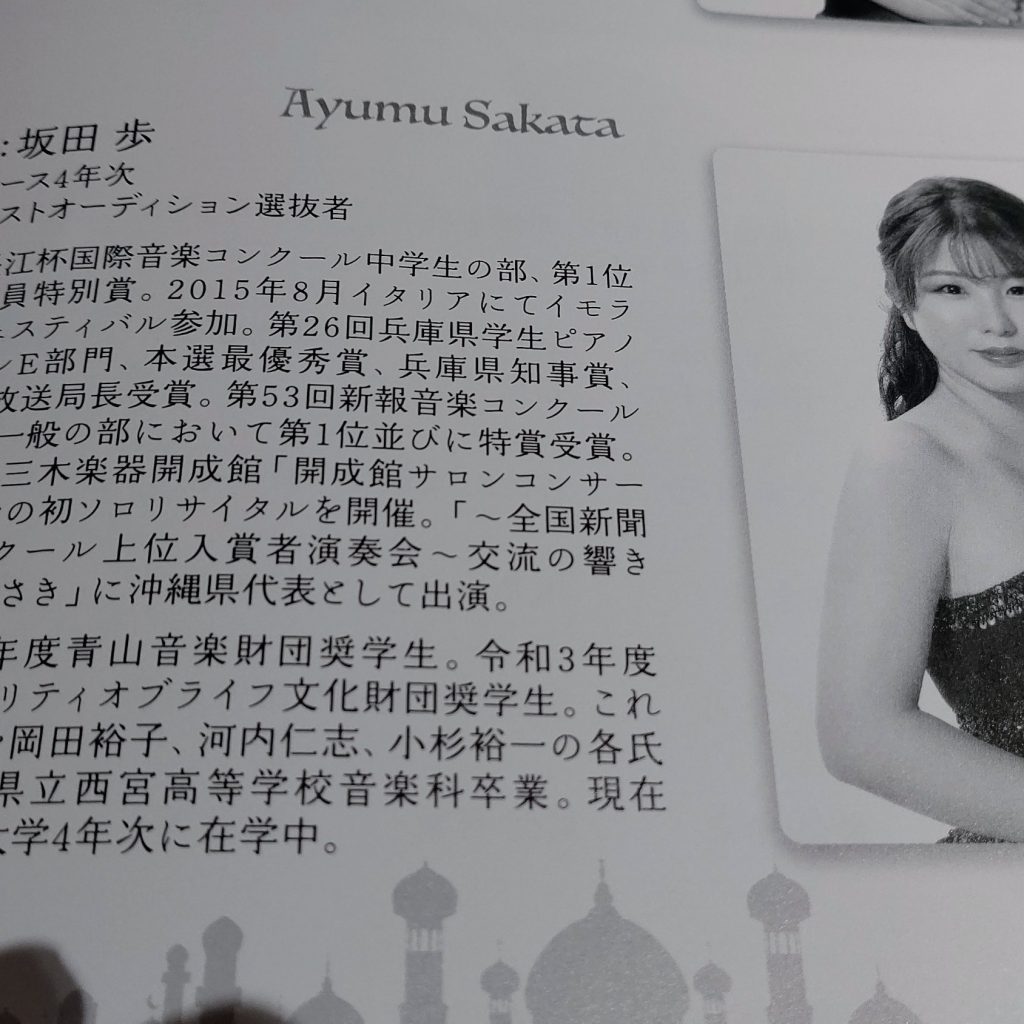 Ayumu Sakata
:坂田 歩
ース4年次
ストオーディション選抜者
江杯国際音楽コンクール中学生の部、第1位
員特別賞。2015年8月イタリアにてイモラ
ェスティバル参加。第26回兵庫県学生ピアノ
ルE部門、本選最優秀賞、兵庫県知事賞、
放送局長受賞。第53回新報音楽コンクール
一般の部において第1位並びに特賞受賞。
三木楽器開成館「開成館サロンコンサー
の初ソロリサイタルを開催。「～全国新聞
クール上位入賞者演奏会～交流の響き
さき」に沖縄県代表として出演。
年度青山音楽財団奨学生。令和3年度
リティオブライフ文化財団奨学生。これ
岡田裕子、河内仁志、小杉裕一の各氏
県立西宮高等学校音楽科卒業。現在
大学4年次に在学中。